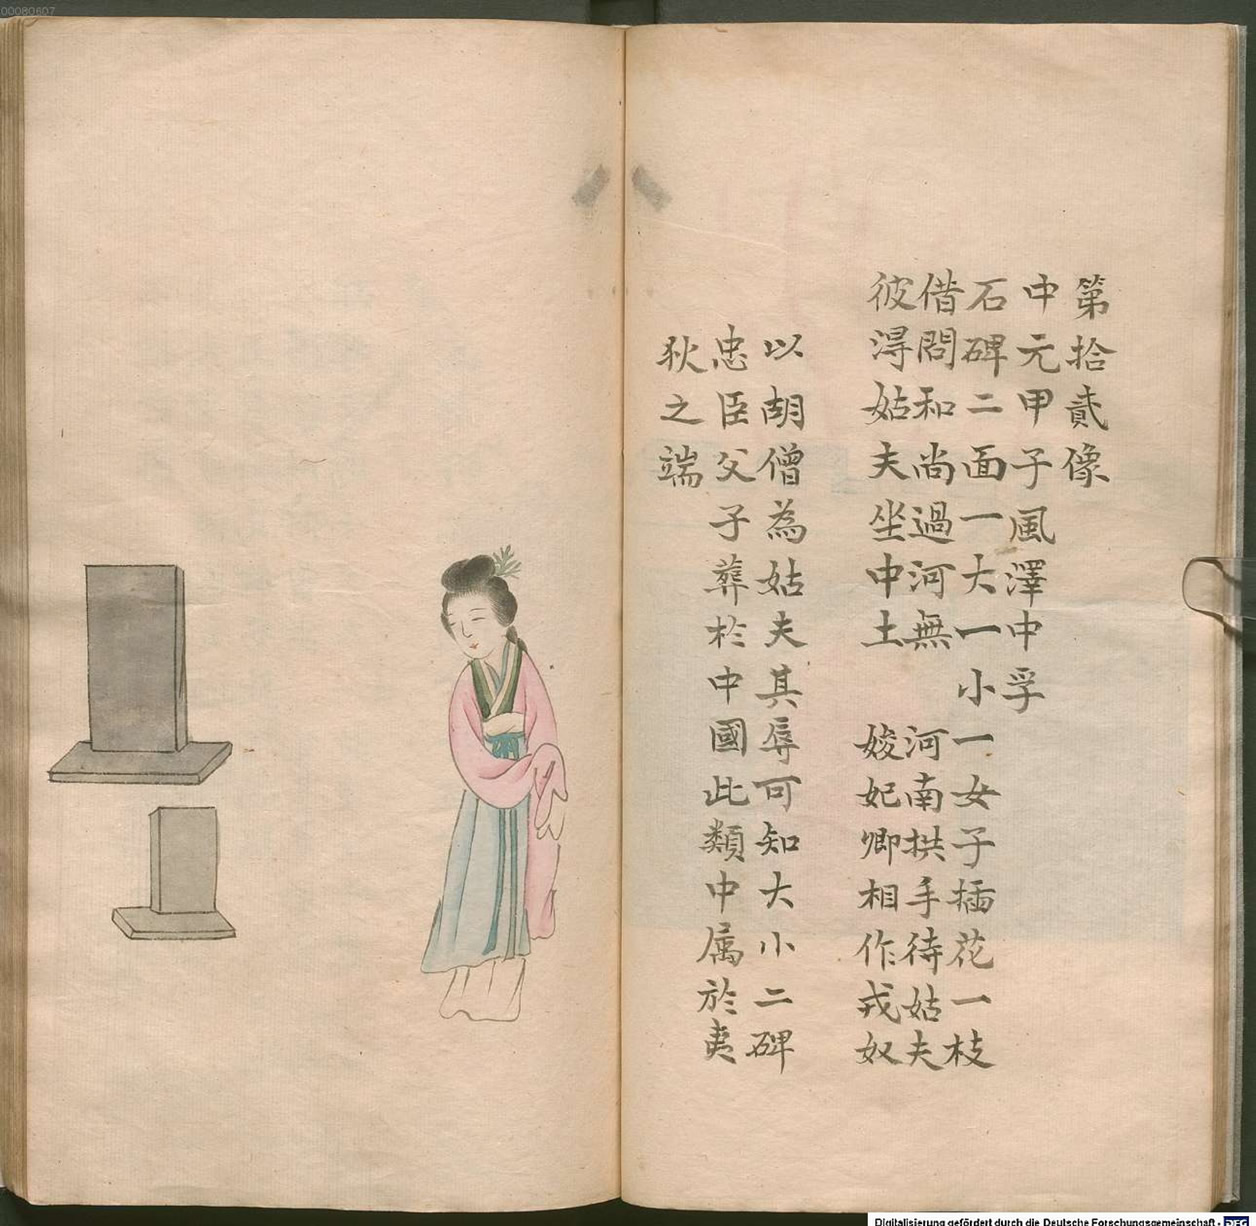 00080607
第拾貳像
中元甲子風澤中孚
石碑二面一大一小 一女子插花一枝
借問和尚過河無 河南拱手待姑夫
彼淂姑夫坐中土 妃卿相作戎奴
以胡僧為姑夫其辱可知大小二碑
忠臣父子葬於中國此類中属於夷
狄之端
Digitalisierung gefördert durch die Deutsche Forschungsgemeinschaft - DFG